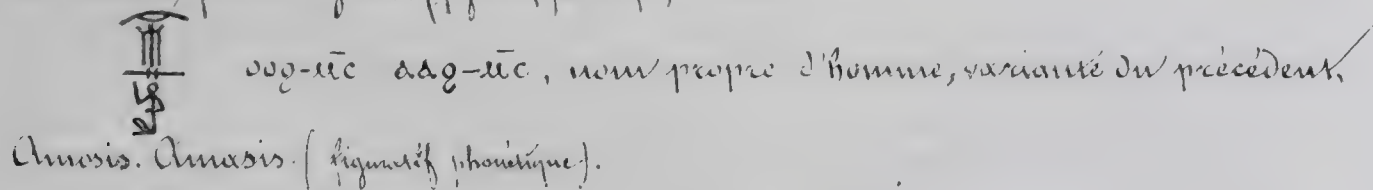 ⲟⲟϩ-ⲙ̄ⲥ ⲁⲁϩ-ⲙ̄ⲥ, nom propre d'homme, variante du précédent,
Amosis. Amasis (figuratif phonétique).